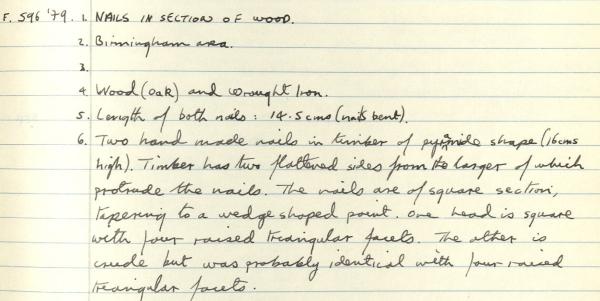 F. 596 '79. 1. NAILS IN SECTION OF WOOD.
2. Birmingham area.
3.
4. Wood (oak) and wrought Iron.
5. Length of both nails : 14.5 cms (nails bent).
6. Two hand made nails in timber of pyramide shape (16cms
high). Timber has two flattened sides from the larger of which
protrude the nails. The nails are of square section,
tapering to a wedge shaped point. One head is square
with four raised triangular facets. The other is
crude but was probably identical with four raised
triangular facets.